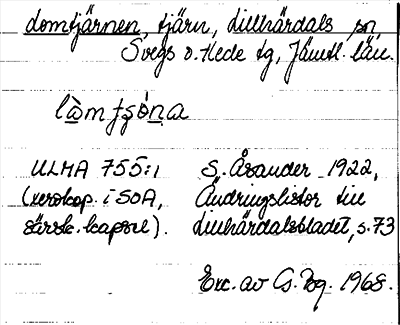 domtjärnen, tjärn, Lillhärdals sn,
Svegs o. Hede tg, Jämtl. län.
ULMA 755:1 S. Åsander 1922,
(xerokop. i SOA, Ändringslistor till
särsk. kapsel). Lillhärdalsbladet, s. 73
Exc. av G. Bg. 1968.